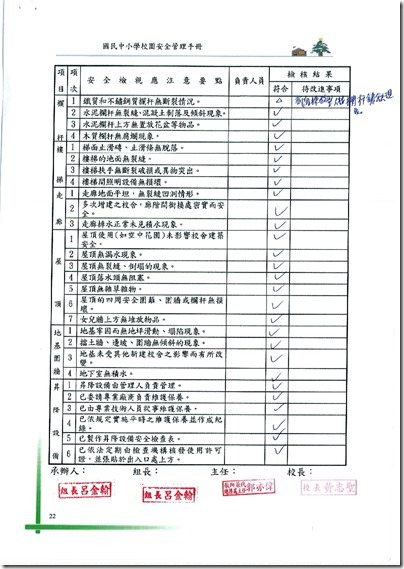 國民中小學校園安全管理手冊
項目 項次 安全檢視應注意要點 負責人員 檢核結果
符合 待改進事項
欄杆 1 鐵質和不鏽鋼質欄杆無斷裂情況。 △
2 水泥欄杆無裂縫、混凝土剝落及傾斜現象。 ✓
3 水泥欄杆上方無置放花盆等物品。 ✓
4 木質欄杆無腐爛現象。 ✓
樓梯 1 梯面止滑磚、止滑條無脫落。 ✓
2 樓梯的地面無裂縫。 ✓
3 樓梯扶手無斷裂破損或異物突出。 ✓
4 樓梯間照明設備無損壞。 ✓
走廊 1 走廊地面平坦，無裂縫凹洞情形。 ✓
2 多次增建之校舍，廊階間銜接處密實而安全。 ✓
3 走廊排水正常未見積水現象。 ✓
屋頂 1 屋頂使用(如空中花園)未影響校舍建築安全。 ✓
2 屋頂無漏水現象。 ✓
3 屋頂無裂縫、倒塌的現象。 ✓
4 屋頂落水頭無阻塞。 ✓
5 屋頂無雜草雜物。 ✓
6 屋頂的四周安全圍籬、圍牆或欄杆無損壞。 ✓
7 女兒牆上方無堆放物品。 ✓
地基圍牆 1 地基牢固而無地坪滑動、塌陷現象。 ✓
2 擋土牆、邊坡、圍牆無傾斜的現象。 ✓
3 地基未受其他新建校舍之影響而有所改變。 ✓
4 地下室無積水。 ✓
昇降設備 1 昇降設備由管理人員負責管理。 ✓
2 已委請專業廠商負責維護保養。 ✓
3 已由專業技術人員從事維護保養。 ✓
4 已依規定實施平時之維護保養並作成紀錄。 ✓
5 已製作昇降設備安全檢查表。 ✓
6 已依法定期由檢查機構核發使用許可證，並張貼於出入口處上方。 ✓
承辦人： 組長： 主任： 校長：
組長呂金翰 組長呂金翰 校長黃志聖
22